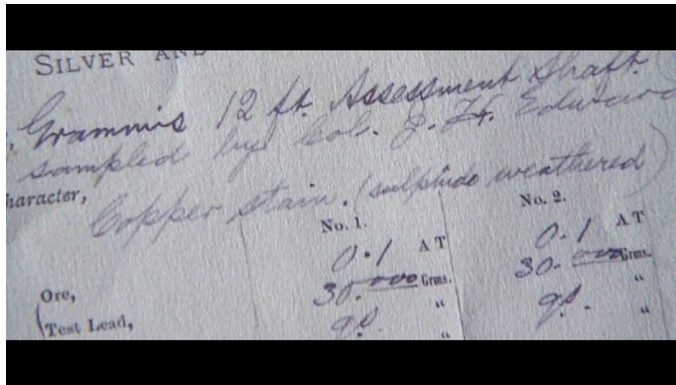 SILVER AND
Grammis 12 ft. Assessment Shaft.
sampled by Col. J. H. Edward
haracter, Copper stain. (sulphide weathered)
No. 1. No. 2.
0.1 A T 0.1 A T
Ore, 30.000 Grms. 30.000 Grms.
Test Lead, q.s. " q.s. "
" "